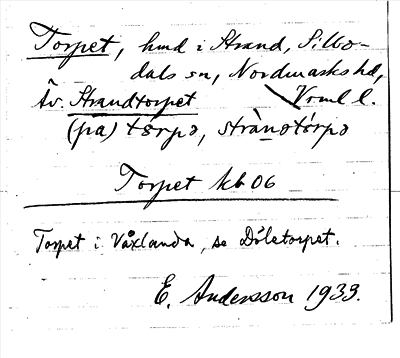 Torpet, hmd i Strand, Silbo-
dals sn, Nordmarks hd,
Äv. Strandtorpet Vrml l.
(pa) tɔrpə, stràndtɔ́rpə
Torpet kb 06
Torpet i Våxlanda, se Döletorpet.
E. Andersson 1933.